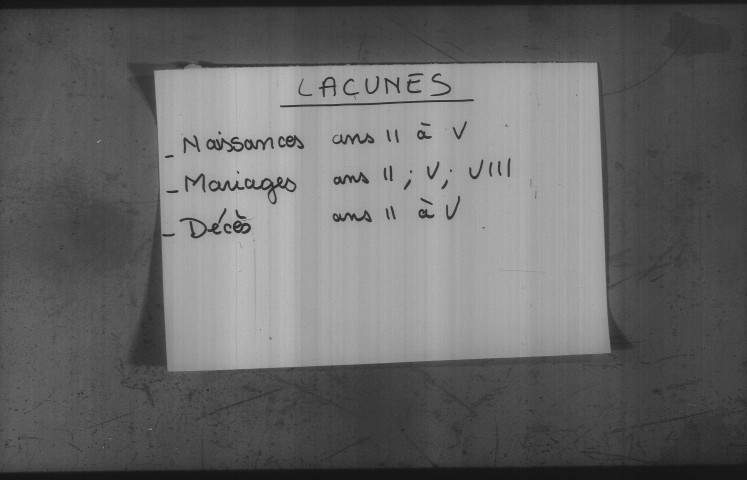 LACUNES
- Naissances ans II à V
- Mariages ans II ; V ; VIII
- Décès ans II à V